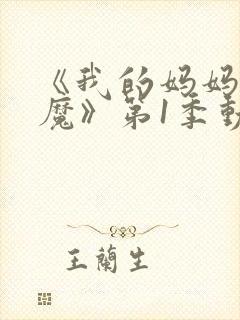 《我的妈妈
魔》第1季動
王蘭生